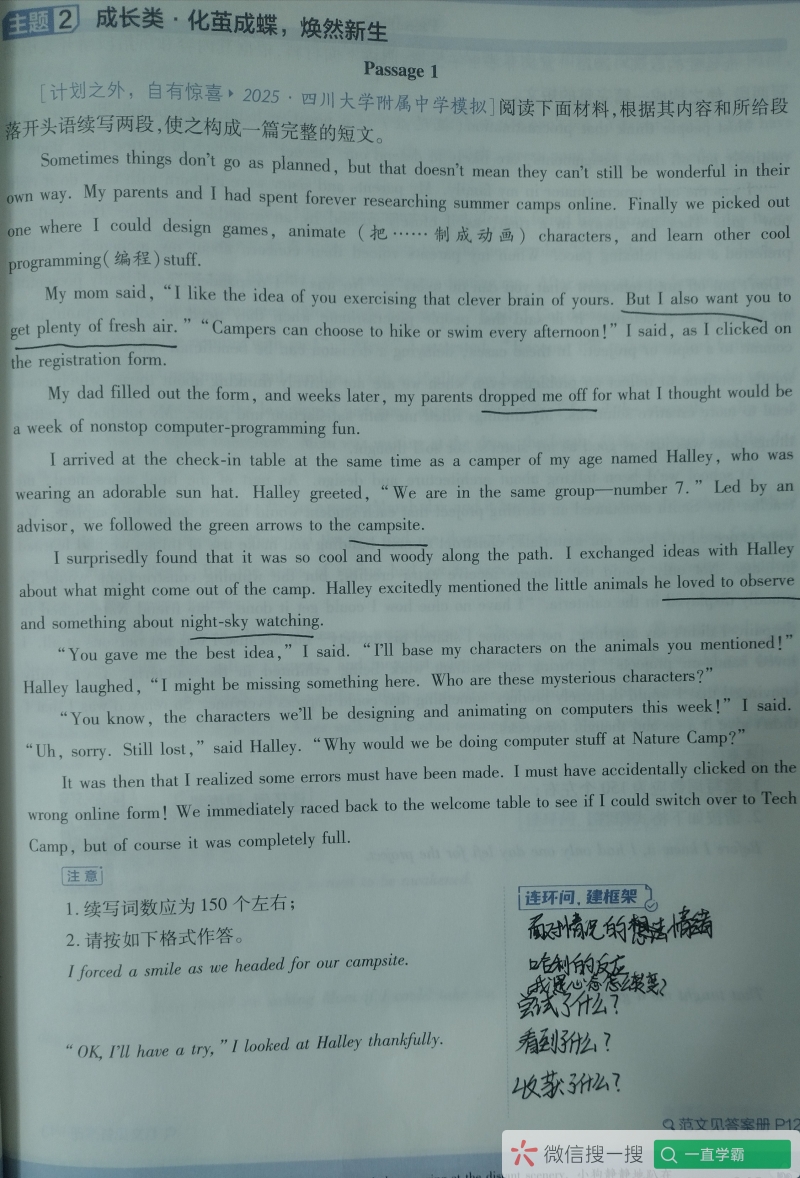 主题2 成长类·化茧成蝶，焕然新生
Passage 1
[计划之外，自有惊喜▸ 2025·四川大学附属中学模拟]阅读下面材料,根据其内容和所给段
落开头语续写两段,使之构成一篇完整的短文。
Sometimes things don't go as planned, but that doesn't mean they can't still be wonderful in their
own way. My parents and I had spent forever researching summer camps online. Finally we picked out
one where I could design games, animate (把……制成动画) characters, and learn other cool
programming(编程)stuff.
My mom said, "I like the idea of you exercising that clever brain of yours. But I also want you to
get plenty of fresh air." "Campers can choose to hike or swim every afternoon!" I said, as I clicked on
the registration form.
My dad filled out the form, and weeks later, my parents dropped me off for what I thought would be
a week of nonstop computer-programming fun.
I arrived at the check-in table at the same time as a camper of my age named Halley, who was
wearing an adorable sun hat. Halley greeted, "We are in the same group—number 7." Led by an
advisor, we followed the green arrows to the campsite.
I surprisedly found that it was so cool and woody along the path. I exchanged ideas with Halley
about what might come out of the camp. Halley excitedly mentioned the little animals he loved to observe
and something about night-sky watching.
"You gave me the best idea," I said. "I'll base my characters on the animals you mentioned!"
Halley laughed, "I might be missing something here. Who are these mysterious characters?"
"You know, the characters we'll be designing and animating on computers this week!" I said.
"Uh, sorry. Still lost," said Halley. "Why would we be doing computer stuff at Nature Camp?"
It was then that I realized some errors must have been made. I must have accidentally clicked on the
wrong online form! We immediately raced back to the welcome table to see if I could switch over to Tech
Camp, but of course it was completely full.
注意
1. 续写词数应为150个左右;
2. 请按如下格式作答。
I forced a smile as we headed for our campsite.
"OK, I'll have a try," I looked at Halley thankfully.
连环问,建框架
面对情况的想法情绪
哈利的反应
我遇心态怎么转变?
尝试了什么?
看到了什么?
收获了什么?
范文见答案册 P12
微信搜一搜
一直学霸